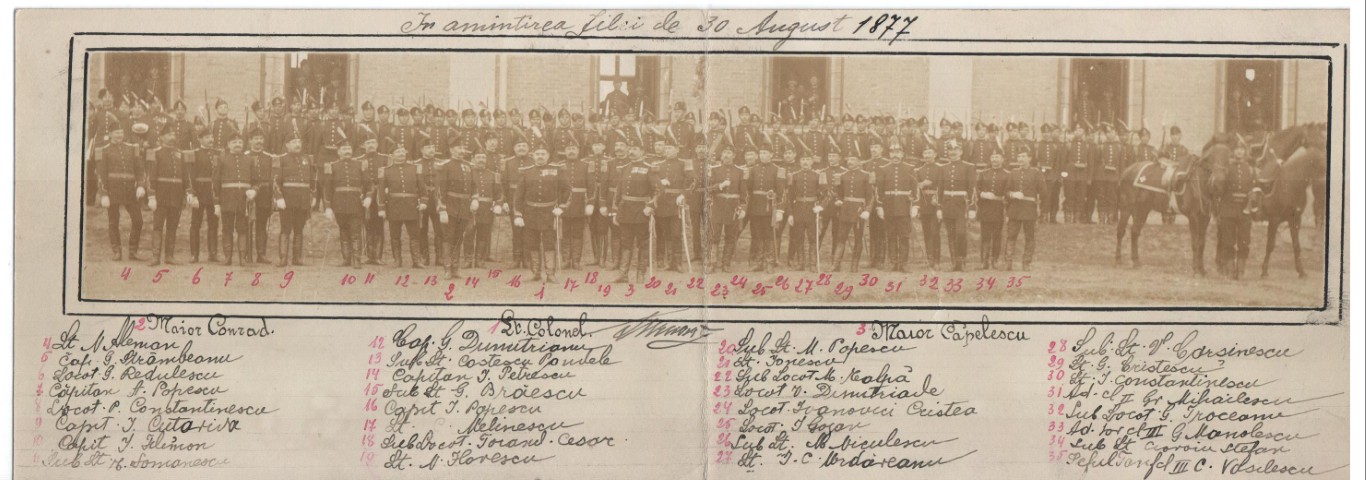 In amintirea zilei de 30 August 1877
4 5 6 7 8 9 10 11 12 13 2 14 15 16 1 17 18 19 3 20 21 22 23 24 25 26 27 28 29 30 31 32 33 34 35
2 Maior Conrad.
4 Lt. N Aleman
5 Cap. G. Strâmbeanu
6 Locot. G. Redulescu
7 Căpitan A. Popescu
8 Locot. P. Constantinescu
9 Capit. I. Cutarida
10 Capit I. Filimon
11 Sub Lt. Somanescu
1 Lt. Colonel.
12 Cap. G. Dumitrianu
13 Sub. Lt. Costescu Pandele
14 Capitan I. Petrescu
15 Sub Lt G. Brăescu
16 Capit I. Popescu
17 Lt. Melinescu
18 Sub Locot. Cesar
19 Lt. N. Florescu
3 Maior Căpelescu
20 Sub Lt. M. Popescu
21 Lt. Ionescu
22 Sub Locot. M.
23 Locot V. Dimitriade
24 Locot. Ivanovici Cristea
25 Locot. I
26 Sub Lt. M. Niculescu
27 Lt. I. C.
28 Sub. Lt.
29 Lt. G. Cristescu
30 Lt. I. Constantinescu
31 Ad. cl II Gr Mihailescu
32 Sub Locot G. Troceanu
33 Ad. cl III G Manolescu
34 Sub Lt Stefan
35 Seful III C. Vasilescu